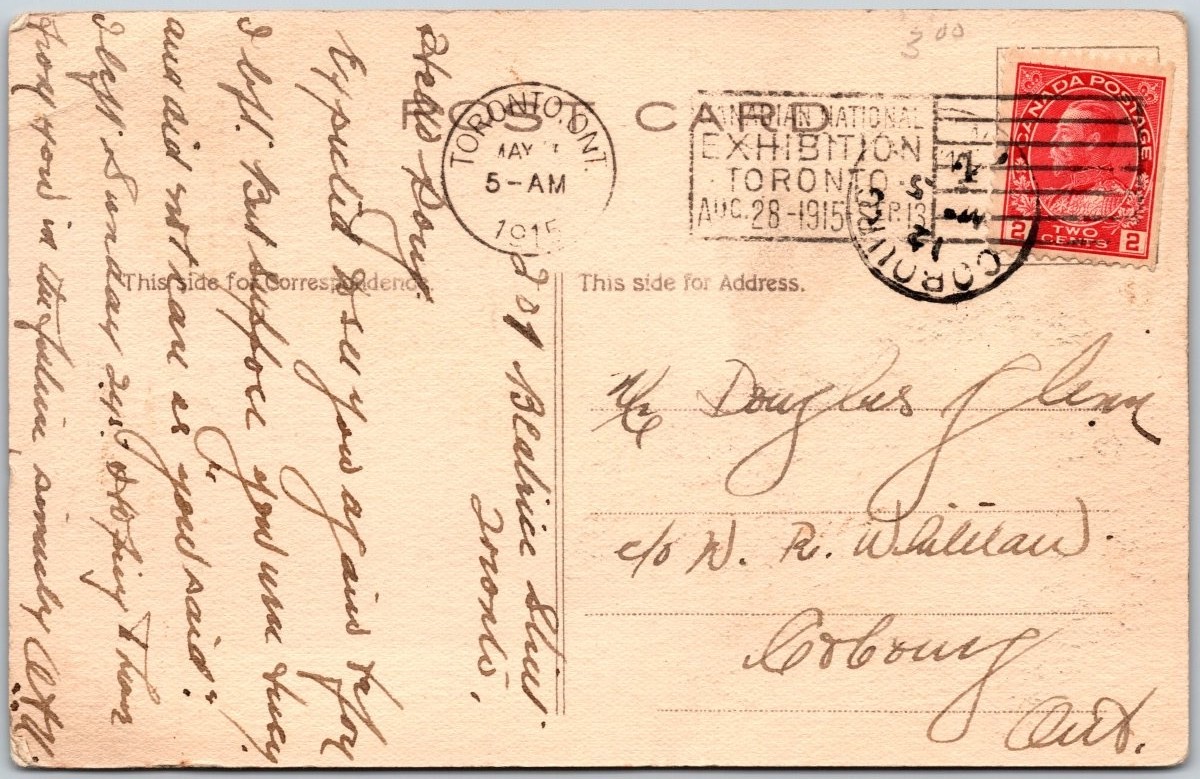 3 00
POST CARD
TORONTO, ONT.
MAY
5-AM
1915
CANADIAN NATIONAL
EXHIBITION
TORONTO
AUG. 28-1915-SEP. 13
COBOURG
CANADA POSTAGE
2 TWO CENTS 2
This side for Correspondence.
This side for Address.
Beatrice
Toronto.
Hello Doug.
Expected to see you again before
I left. But suppose you were busy
and did not care as you said.
I left Sunday
from you in the future, sincerely
Douglas Glenn
c/o W. R.
Cobourg
Ont.